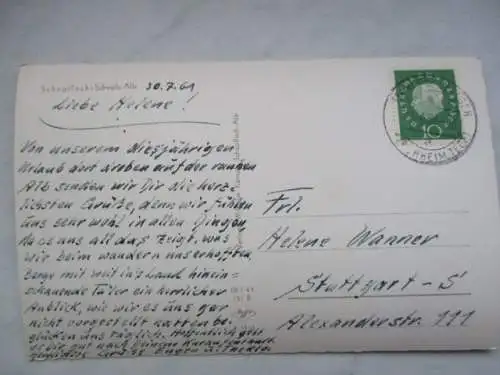 Schopfloch, Schwäb. Alb 30.7.61
Liebe Helene!
Von unserem diesjährigen
Urlaub dort droben auf der rauhen
Alb senden wir Dir die herz-
lichsten Grüße, denn wir fühlen
uns sehr wohl in allen Dingen,
wo es uns all das zeigt, was
wir beim wandern unverhofften
Berge mit weit ins Land hinein-
schauende Täler ein herrlicher
Anblick, wie wir es uns gar
nicht vorgestellt hatten be-
glücken uns täglich. Hoffentlich geht
es Dir gut nach Deinem Kuraufenthalt
DEUTSCHE BUNDESPOST
10
Frl.
Helene Wanner
Stuttgart-S
Alexanderstr. 111